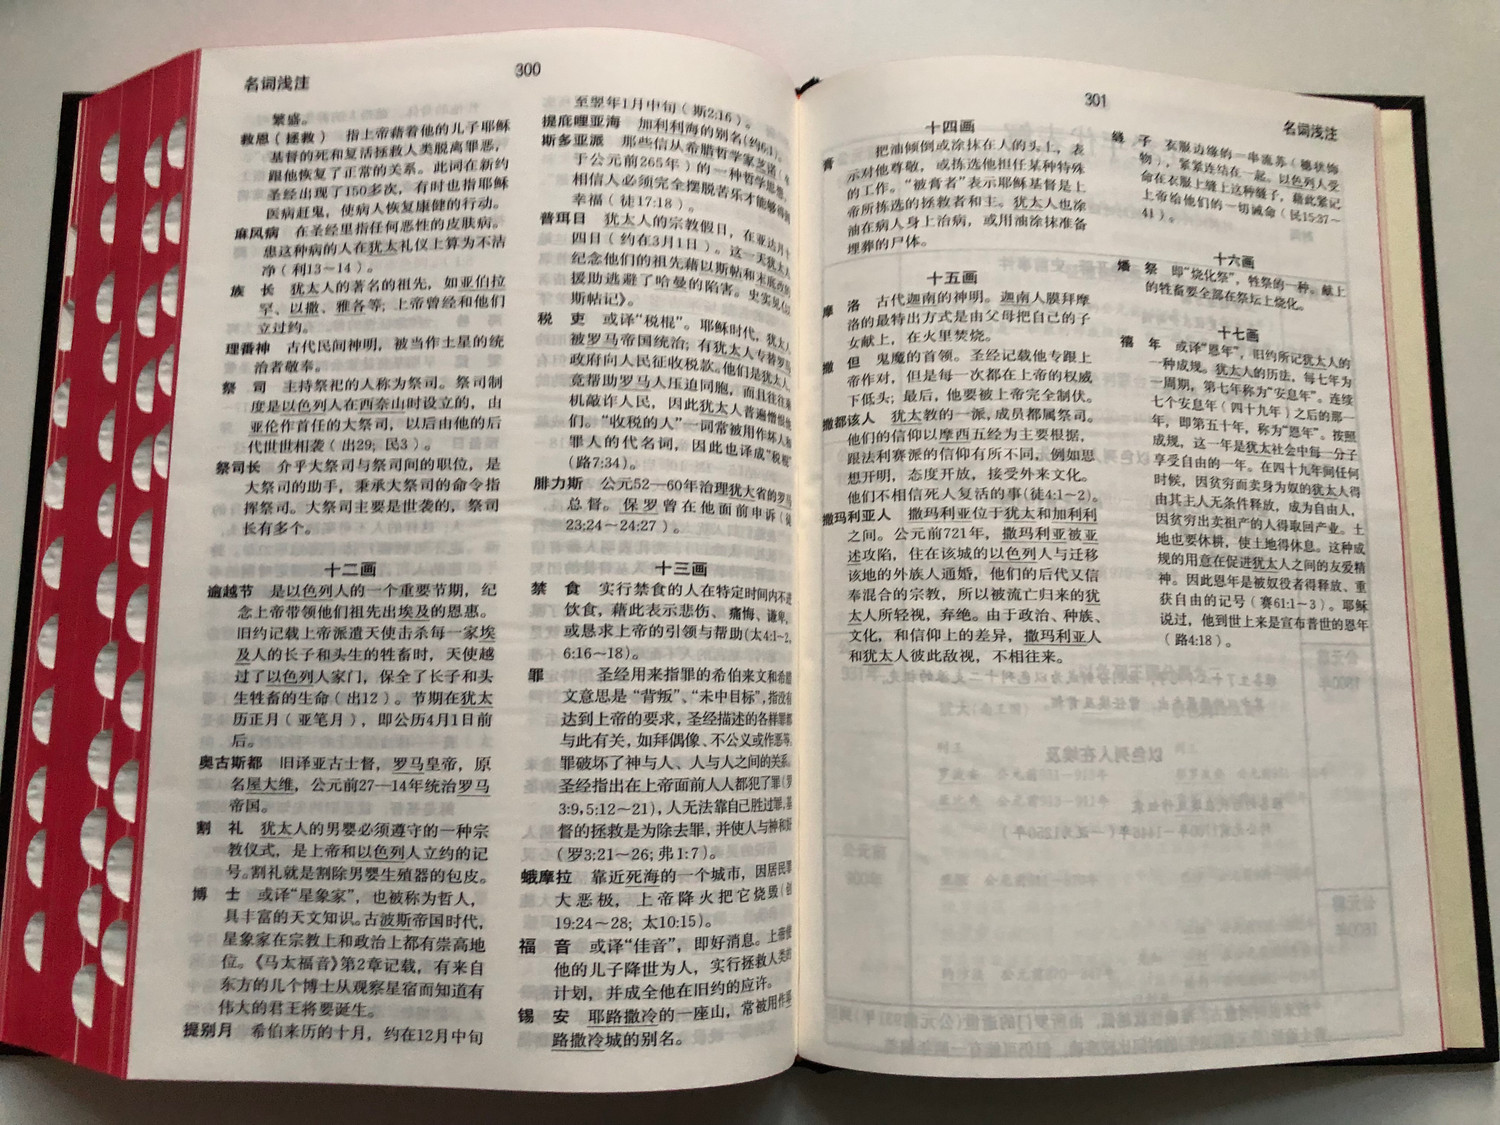 名词浅注
300
繁盛。
救恩(拯救) 指上帝藉着他的儿子耶稣
基督的死和复活拯救人类脱离罪恶,
跟他恢复了正常的关系。此词在新约
圣经出现了150多次,有时也指耶稣
医病赶鬼,使病人恢复康健的行动。
麻风病 在圣经里指任何恶性的皮肤病。
患这种病的人在犹太礼仪上算为不洁
净(利13~14)。
族 长 犹太人的著名的祖先,如亚伯拉
罕、以撒、雅各等;上帝曾经和他们
立过约。
理番神 古代民间神明,被当作土星的统
治者敬奉。
祭 司 主持祭祀的人称为祭司。祭司制
度是以色列人在西奈山时设立的,由
亚伦作首任的大祭司,以后由他的后
代世世相袭(出29;民3)。
祭司长 介乎大祭司与祭司间的职位,是
大祭司的助手,秉承大祭司的命令指
挥祭司。大祭司主要是世袭的,祭司
长有多个。
十二画
逾越节 是以色列人的一个重要节期,纪
念上帝带领他们祖先出埃及的恩惠。
旧约记载上帝派遣天使击杀每一家埃
及人的长子和头生的牲畜时,天使越
过了以色列人家门,保全了长子和头
生牲畜的生命(出12)。节期在犹太
历正月(亚笔月),即公历4月1日前
后。
奥古斯都 旧译亚古士督,罗马皇帝,原
名屋大维,公元前27—14年统治罗马
帝国。
割 礼 犹太人的男婴必须遵守的一种宗
教仪式,是上帝和以色列人立约的记
号。割礼就是割除男婴生殖器的包皮。
博 士 或译“星象家”,也被称为哲人,
具丰富的天文知识。古波斯帝国时代,
星象家在宗教上和政治上都有崇高地
位。《马太福音》第2章记载,有来自
东方的几个博士从观察星宿而知道有
伟大的君王将要诞生。
提别月 希伯来历的十月,约在12月中旬
至翌年1月中旬(斯2:16)。
提庇哩亚海 加利利海的别名(约6:1)。
斯多亚派 那些信从希腊哲学家芝诺(
于公元前265年)的一种哲学思想。
相信人必须完全摆脱苦乐才能够得到
幸福(徒17:18)。
普珥日 犹太人的宗教假日,在亚达月十
四日(约在3月1日)。这一天犹太人
纪念他们的祖先藉以斯帖和末底改的
援助逃避了哈曼的陷害。史实见《以
斯帖记》。
税 吏 或译“税棍”。耶稣时代,犹太人
被罗马帝国统治;有犹太人专替罗马
政府向人民征收税款。他们是犹太人,
竟帮助罗马人压迫同胞,而且往往乘
机敲诈人民,因此犹太人普遍憎恨他
们。“收税的人”一词常被用作坏人和
罪人的代名词,因此也译成“税棍”
(路7:34)。
腓力斯 公元52—60年治理犹大省的罗马
总督。保罗曾在他面前申诉(徒
23:24~24:27)。
十三画
禁 食 实行禁食的人在特定时间内不进
饮食,藉此表示悲伤、痛悔、谦卑,
或恳求上帝的引领与帮助(太4:1~2,
6:16~18)。
罪 圣经用来指罪的希伯来文和希腊
文意思是“背叛”、“未中目标”,指没有
达到上帝的要求,圣经描述的各样罪都
与此有关,如拜偶像、不公义或作恶等。
罪破坏了神与人、人与人之间的关系。
圣经指出在上帝面前人人都犯了罪(罗
3:9,5:12~21),人无法靠自己胜过罪。基
督的拯救是为除去罪,并使人与神和好
(罗3:21~26;弗1:7)。
蛾摩拉 靠近死海的一个城市,因居民罪
大恶极,上帝降火把它烧毁(创
19:24~28;太10:15)。
福 音 或译“佳音”,即好消息。上帝使
他的儿子降世为人,实行拯救人类的
计划,并成全他在旧约的应许。
锡 安 耶路撒冷的一座山,常被用作耶
路撒冷城的别名。
301
名词浅注
十四画
膏 把油倾倒或涂抹在人的头上,表
示对他尊敬,或拣选他担任某种特殊
的工作。“被膏者”表示耶稣基督是上
帝所拣选的拯救者和主。犹太人也涂
油在病人身上治病,或用油涂抹准备
埋葬的尸体。
十五画
摩 洛 古代迦南的神明。迦南人膜拜摩
洛的最特出方式是由父母把自己的子
女献上,在火里焚烧。
撒 但 鬼魔的首领。圣经记载他专跟上
帝作对,但是每一次都在上帝的权威
下低头;最后,他要被上帝完全制伏。
撒都该人 犹太教的一派,成员都属祭司。
他们的信仰以摩西五经为主要根据,
跟法利赛派的信仰有所不同,例如思
想开明,态度开放,接受外来文化。
他们不相信死人复活的事(徒4:1~2)。
撒玛利亚人 撒玛利亚位于犹太和加利利
之间。公元前721年,撒玛利亚被亚
述攻陷,住在该城的以色列人与迁移
该地的外族人通婚,他们的后代又信
奉混合的宗教,所以被流亡归来的犹
太人所轻视,弃绝。由于政治、种族、
文化,和信仰上的差异,撒玛利亚人
和犹太人彼此敌视,不相往来。
繸 子 衣服边缘的一串流苏(穗状饰
物),紧紧连结在一起。以色列人受
命在衣服上缝上这种繸子,藉此紧记
上帝给他们的一切诫命(民15:37~
41)。
十六画
燔 祭 即“烧化祭”,牲祭的一种。献上
的牲畜要全部在祭坛上烧化。
十七画
禧 年 或译“恩年”,旧约所记犹太人的
一种成规。犹太人的历法,每七年为
一周期,第七年称为“安息年”。连续
七个安息年(四十九年)之后的那一
年,即第五十年,称为“恩年”。按照
成规,这一年是犹太社会中每一分子
享受自由的一年。在四十九年间任何
时候,因贫穷而卖身为奴的犹太人得
由其主人无条件释放,成为自由人,
因贫穷出卖祖产的人得取回产业。土
地也要休耕,使土地得休息。这种成
规的用意在促进犹太人之间的友爱精
神。因此恩年是被奴役者得释放、重
获自由的记号(赛61:1~3)。耶稣
说过,他到世上来是宣布普世的恩年
(路4:18)。